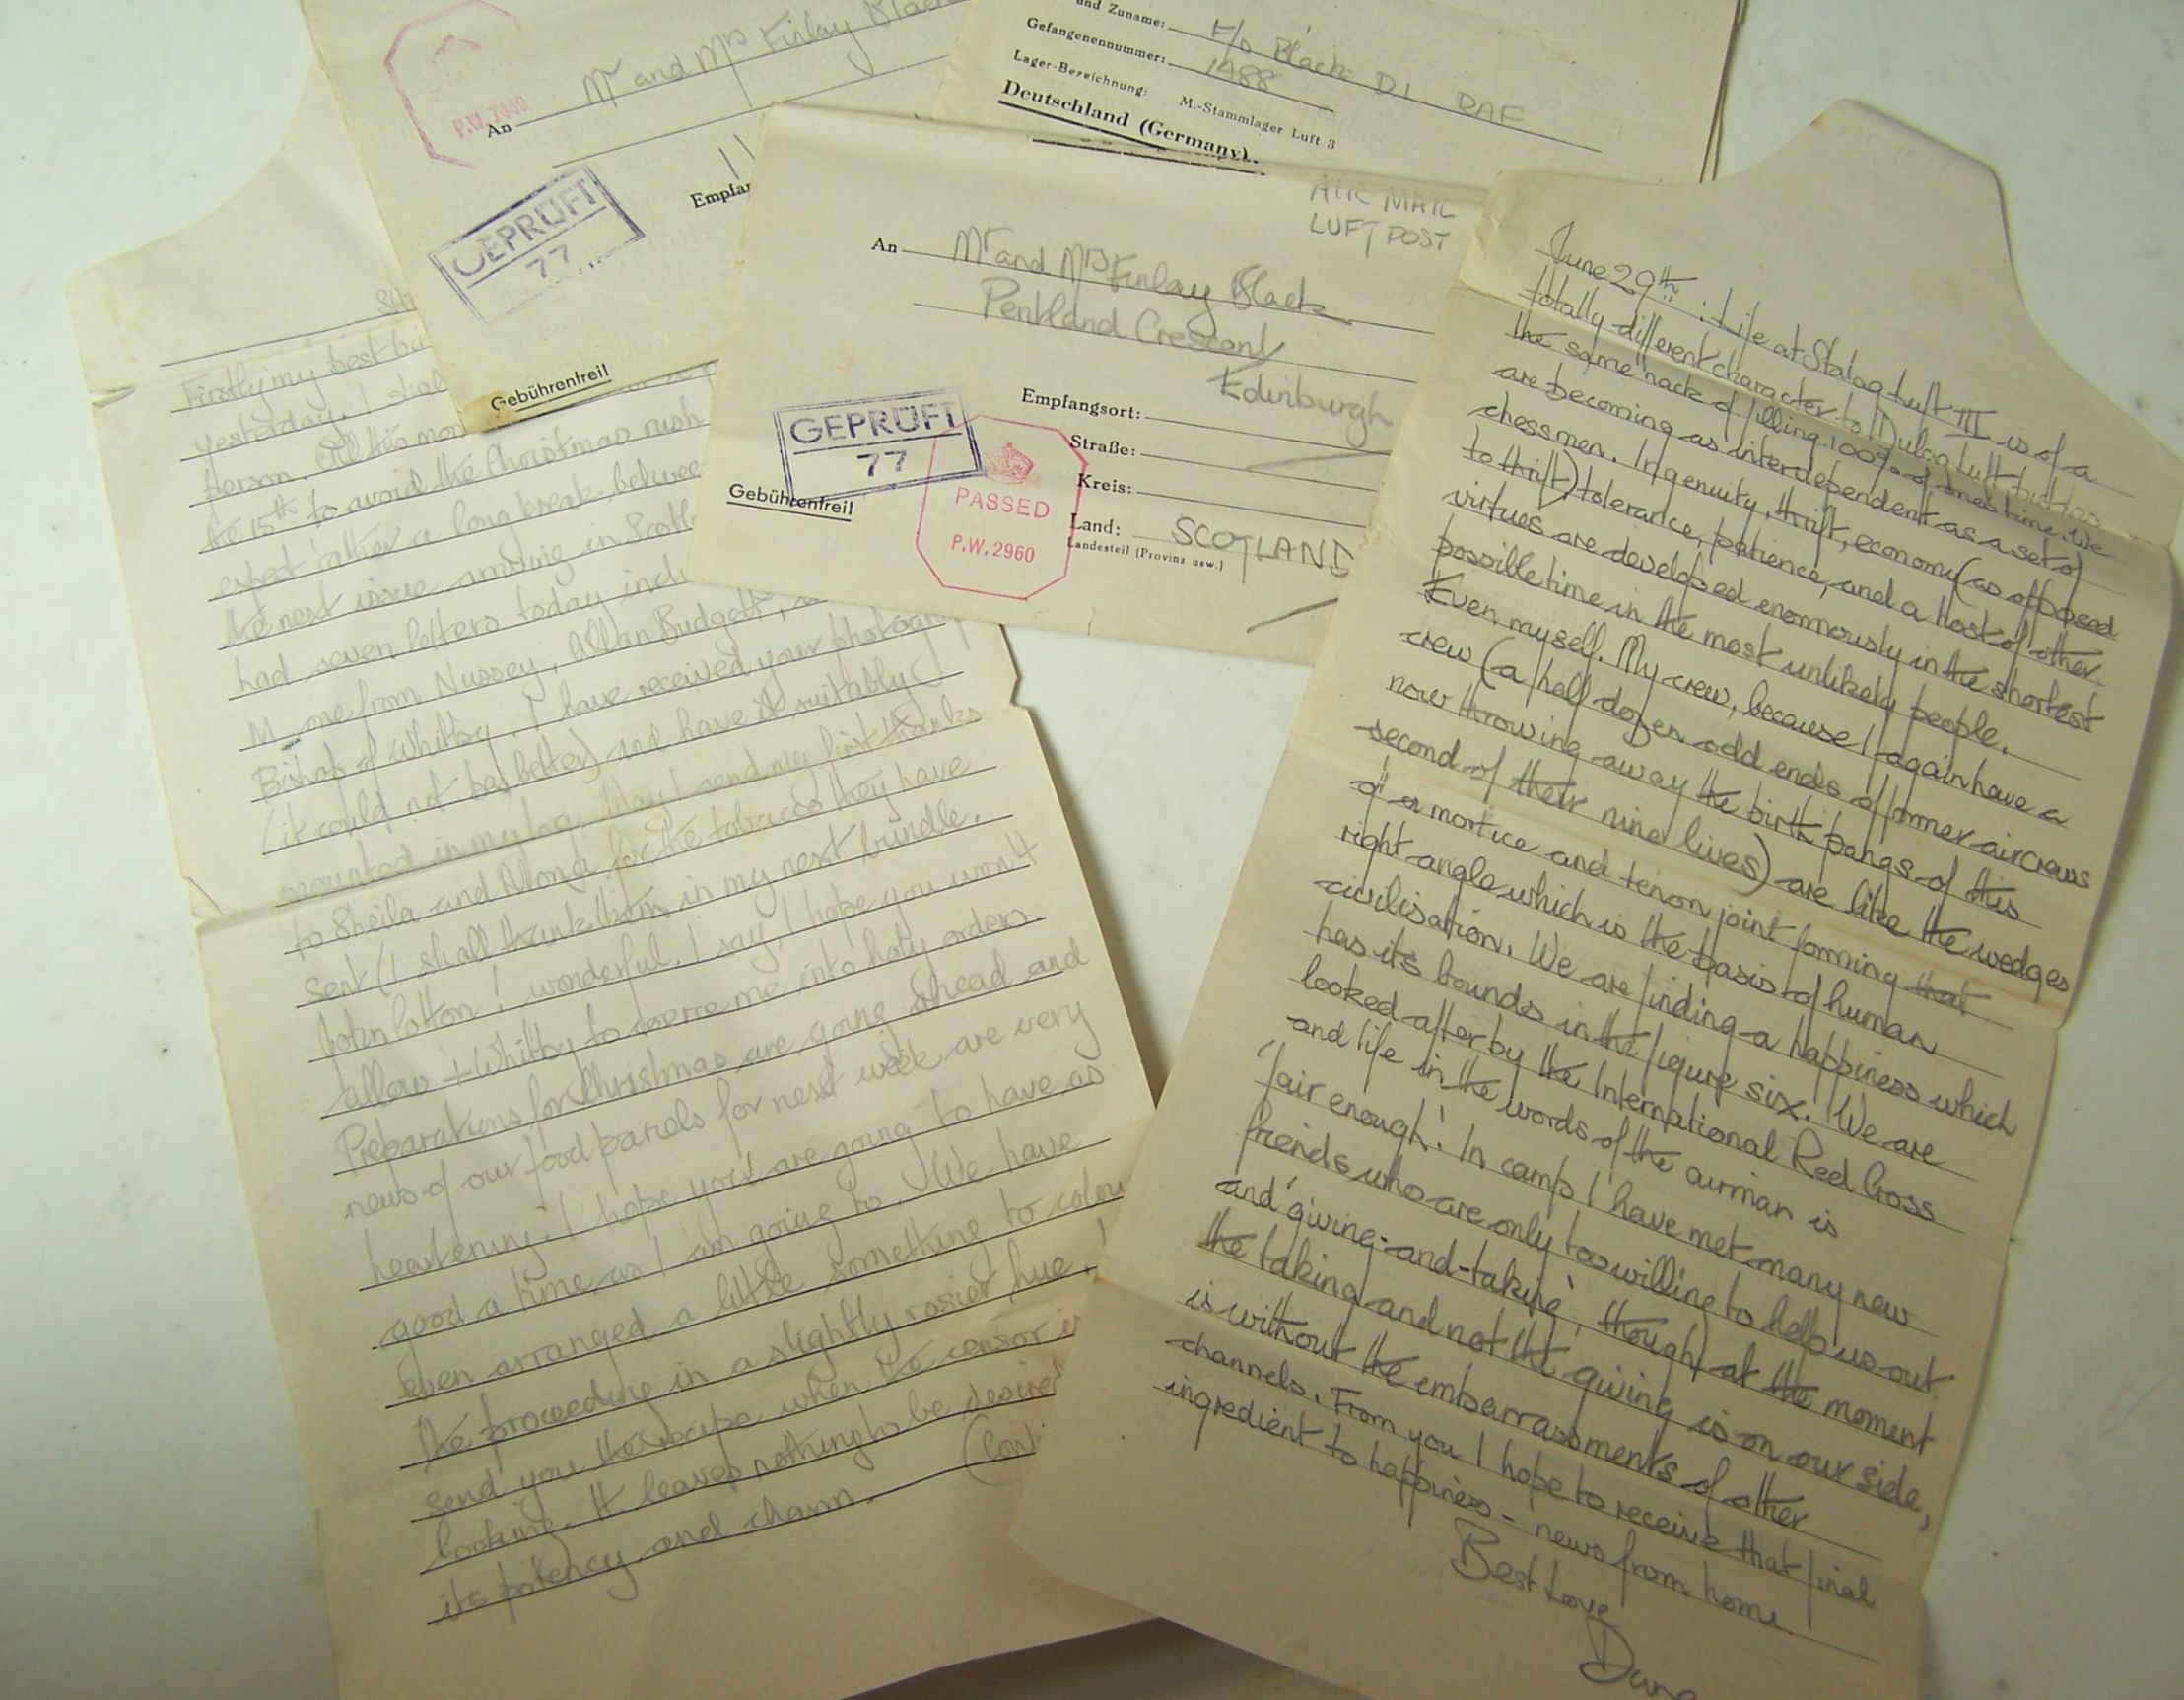 Mr and Mrs Finlay Black
P.W. 7440
An
GEPRÜFT
77
Gebührenfrei!
und Zuname: F/O Black D.
Gefangenennummer: 1488
Lager-Bezeichnung: M.-Stammlager Luft 3
Deutschland (Germany).
AIR MAIL
LUFTPOST
An Mr and Mrs Finlay Black
Pentland Crescent
Edinburgh
Empfangsort:
Straße:
Kreis:
Land: SCOTLAND
Landesteil (Provinz usw.)
GEPRÜFT
77
PASSED
P.W. 2960
Gebührenfrei!
Firstly my best
yesterday. I shal
person. All this mon
the 15th to avoid the Christmas rush
expect rather a long break betwee
the next issue arriving in Scotl
had seven letters today incl
M, one from Nussey, Allan Budgett,
Bishop of Whitby. I have received your photograp
(it could not be better) and have it suitably
mounted in my log. May I send my first thanks
to Sheila and Mona for the tobacco they have
sent (I shall thank them in my next bundle.
John Cotton! wonderful. I say, I hope you won't
allow + Whitby to coerce me into holy orders.
Preparations for Christmas are going ahead and
news of our food parcels for next week are very
heartening. I hope you are going to have as
good a time as I am going to. We have
even arranged a little something to colou
the proceeding in a slightly rosier hue. I
send you the recipe when the censor is
looking. It leaves nothing to be desired
its potency and charm.
(Cont
June 29th: Life at Stalag Luft III is of a
totally different character to Dulag Luft but has
the same nack of filling 100% of ones time. We
are becoming as interdependent as a set of
chessmen. Ingenuity, thrift, economy (as opposed
to thrift) tolerance, patience, and a host of other
virtues are developed enormously in the shortest
possible time in the most unlikely people.
Even myself. My crew, because I again have a
crew (a half dozen odd ends of former aircrews
now throwing away the birth pangs of this
second of their nine lives) are like the wedges
of a mortice and tenon joint forming that
right angle which is the basis of human
civilisation. We are finding a happiness which
has its bounds in the figure six. We are
looked after by the International Red Cross
and life in the words of the airman is
'fair enough'. In camp I have met many new
friends who are only too willing to help us out
and 'giving-and-taking', though at the moment
the taking and not the giving is on our side,
is without the embarrassments of other
channels. From you I hope to receive that final
ingredient to happiness - news from home.
Best Love